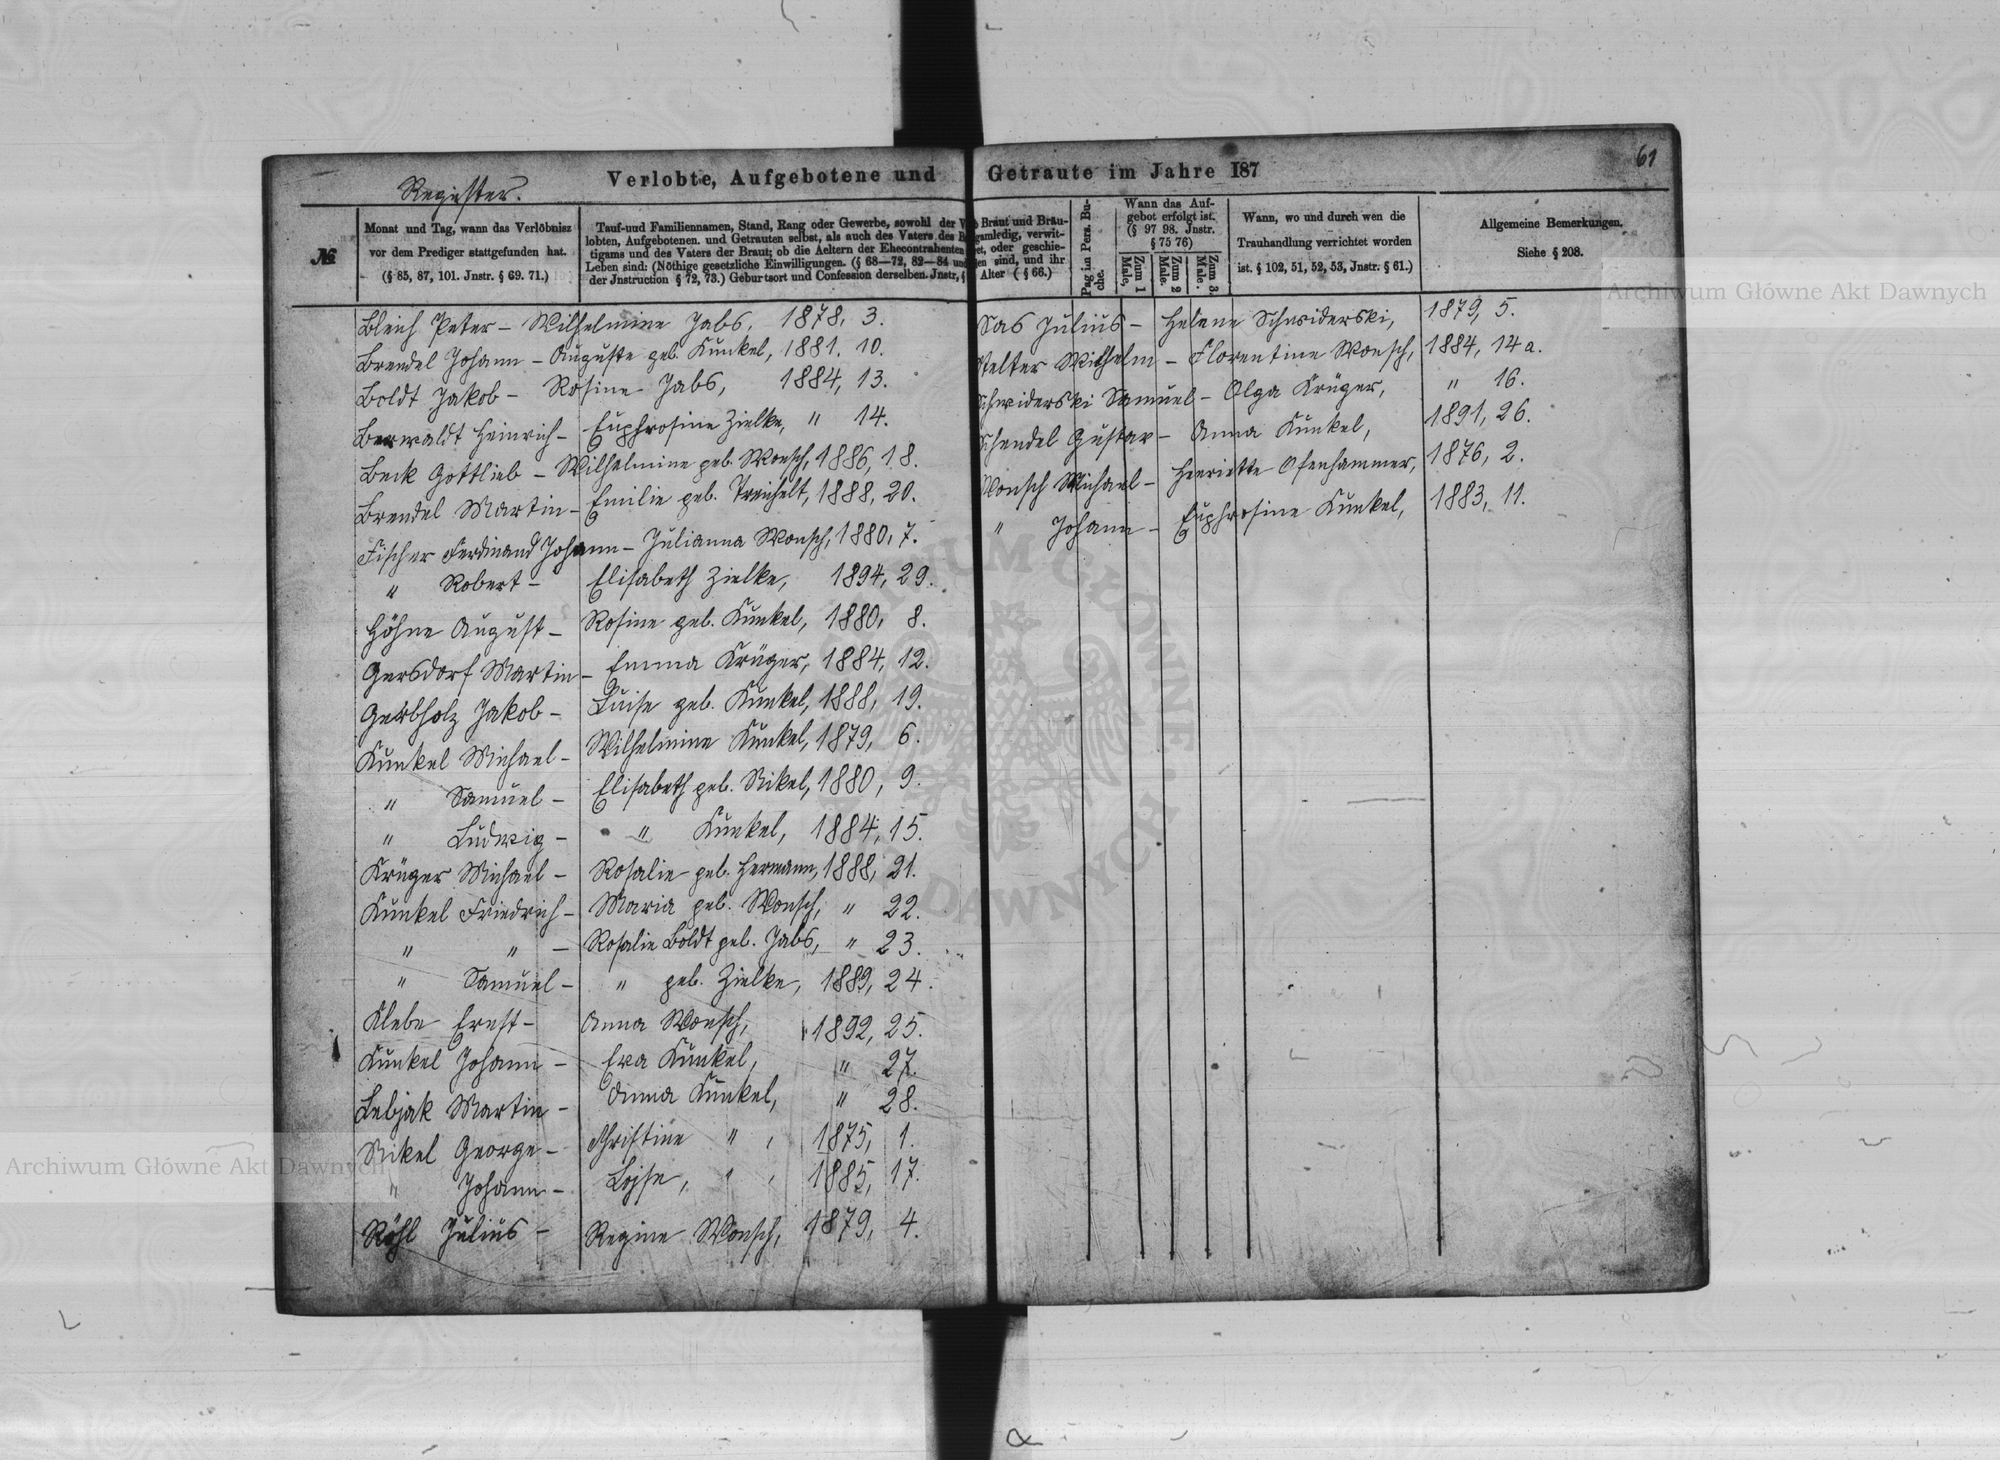 Verlobte, Aufgebotene und Getraute im Jahre 187
61
Register.
№
Monat und Tag, wann das Verlöbnisz
vor dem Prediger stattgefunden hat.
(§ 85, 87, 101. Jnstr. § 69. 71.)
Tauf-und Familiennamen, Stand, Rang oder Gewerbe, sowohl der Ver
lobten, Aufgebotenen. und Getrauten selbst, als auch des Vaters des
tigams und des Vaters der Braut; ob die Aeltern der Ehecontrahenten
Leben sind: (Nöthige gesetzliche Einwilligungen. (§ 68—72, 82—84 und
der Jnstruction § 72, 73.) Geburtsort und Confession derselben. Jnstr, §
Braut und Bräu-
gamledig, verwit-
wet, oder geschie-
den sind, und ihr
Alter ( § 66.)
Pag im Pers. Bu-
che.
Wann das Auf-
gebot erfolgt ist.
(§ 97 98. Jnstr.
§ 75 76)
Zum 1 Male,
Zum 2 Male.
Zum 3. Male.
Wann, wo und durch wen die
Trauhandlung verrichtet worden
ist. § 102, 51, 52, 53, Jnstr. § 61.)
Allgemeine Bemerkungen.
Siehe § 208.
Bleich Peter – Wilhelmine Jabs, 1878, 3.
Brendel Johann – Auguste geb. Kunkel, 1881. 10.
Boldt Jakob – Rosine Jabs, 1884, 13.
Berwaldt Heinrich – Euphrosine Zielke, " 14.
Beck Gottlieb – Wilhelmine geb. Wonsch, 1886, 18.
Brendel Martin – Emilie geb. Treichelt, 1888, 20.
Fischer Ferdinand Johann – Julianna Wonsch, 1880, 7.
" Robert – Elisabeth Zielke, 1894, 29.
Höhne August – Rosine geb. Kunkel, 1880, 8.
Gersdorf Martin – Emma Krüger, 1884, 12.
Gerbholz Jakob – Luise geb. Kunkel, 1888, 19.
Kunkel Michael – Wilhelmine Kunkel, 1879, 6.
" Samuel – Elisabeth geb. Nikel, 1880, 9.
" Ludwig – " Kunkel, 1884, 15.
Krüger Michael – Rosalie geb. Hermann, 1888, 21.
Kunkel Friedrich – Maria geb. Wonsch, " 22.
" " – Rosalie Boldt geb. Jabs, " 23.
" Samuel – " geb. Zielke, 1889, 24.
Klebe Ernst – Anna Wonsch, 1892, 25.
Kunkel Johann – Eva Kunkel, " 27.
Lebjak Martin – Anna Kunkel, " 28.
Nikel George – Christine " , 1875, 1.
" Johann – Lojse, " , 1885, 17.
Röhl Julius – Regine Wonsch, 1879, 4.
Sas Julius – Helene Schwiderski, 1879, 5.
Stelter Wilhelm – Florentine Wonsch, 1884, 14a.
Schwiderski Samuel – Olga Krüger, " 16.
Schendel Gustav – Anna Kunkel, 1891, 26.
Wonsch Michael – Henriette Ofenhammer, 1876, 2.
" Johann – Euphrosine Kunkel, 1883, 11.
Archiwum Główne Akt Dawnych
Archiwum Główne Akt Dawnych